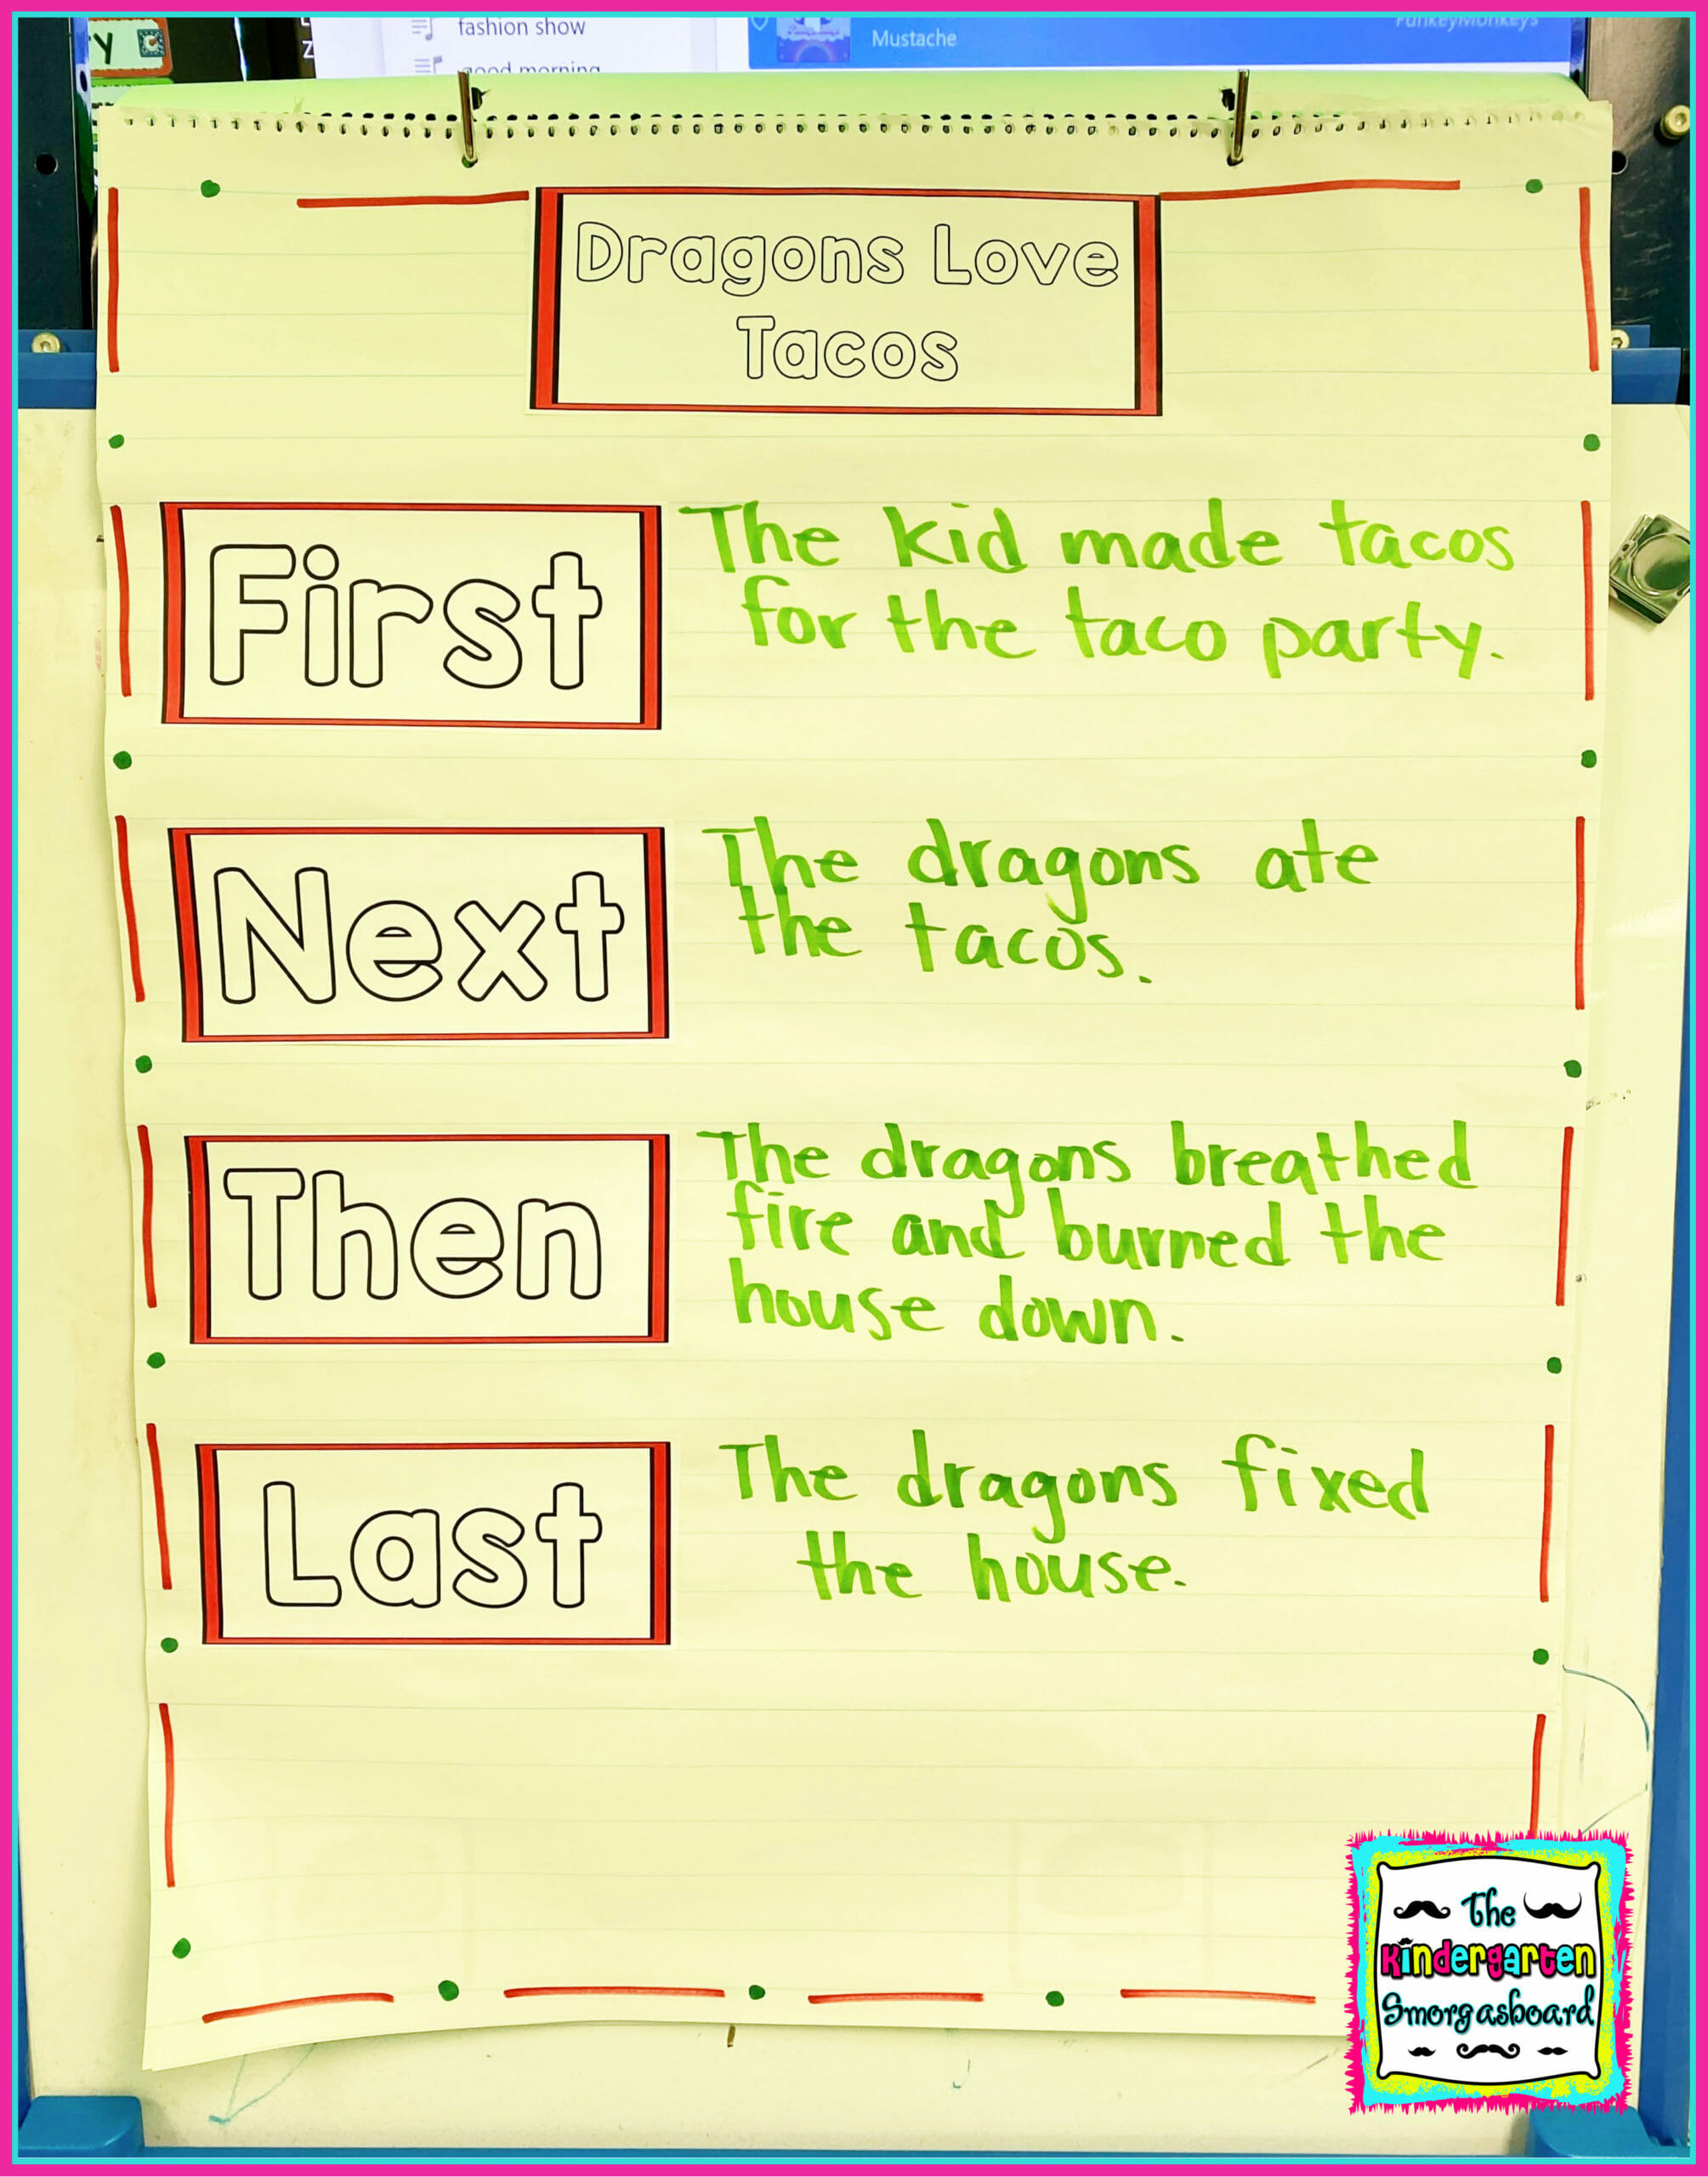 Y
fashion show
good morning
Mustache
FunkeyMonkeys
Dragons Love
Tacos
First
The kid made tacos
for the taco party.
Next
The dragons ate
the tacos.
Then
The dragons breathed
fire and burned the
house down.
Last
The dragons fixed
the house.
The
Kindergarten
Smorgasboard